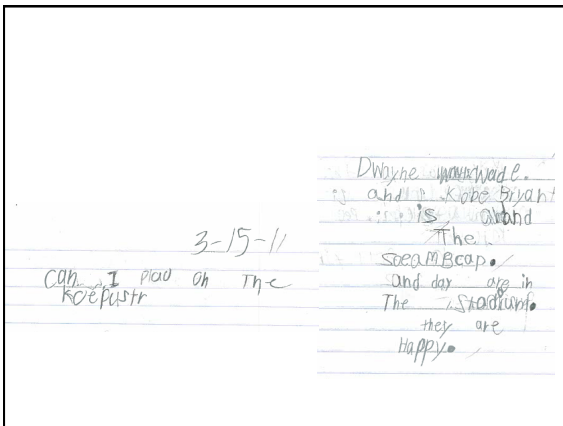 3-15-11
can I plau on The
koepustr
Dwayne Wade.
and Kobe Bryant
is and
The
SoeaMBcap.
and day are in
The Stadium.
they are
Happy.